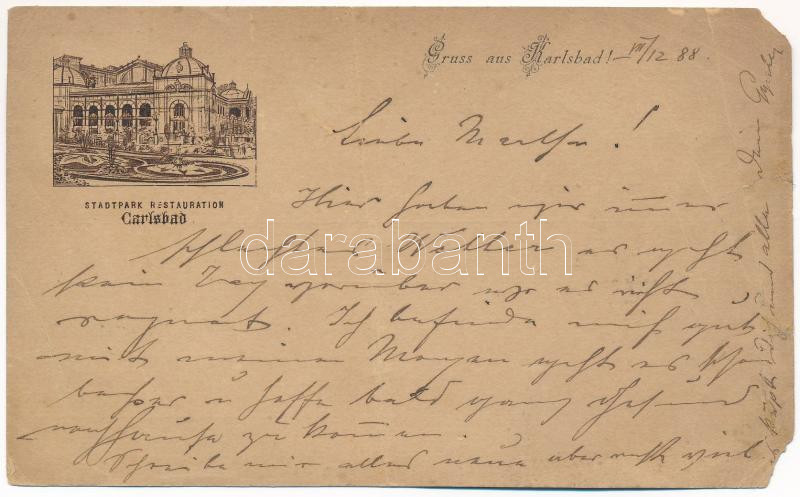 Gruss aus Karlsbad! – VII/12 88.
STADTPARK RESTAURATION
Carlsbad
Liebe Martha!
Hier haben wir immer
schlechtes Wetter es geht
kein Tag vorüber wo es nicht
regnet. Ich befinde mich gut
mit meinem Magen geht es schon
besser u hoffe bald ganz gesund
nachhause zu kommen.
Schreibe mir alles neue aber recht viel.
küsst Dich und alle Dein
darabanth